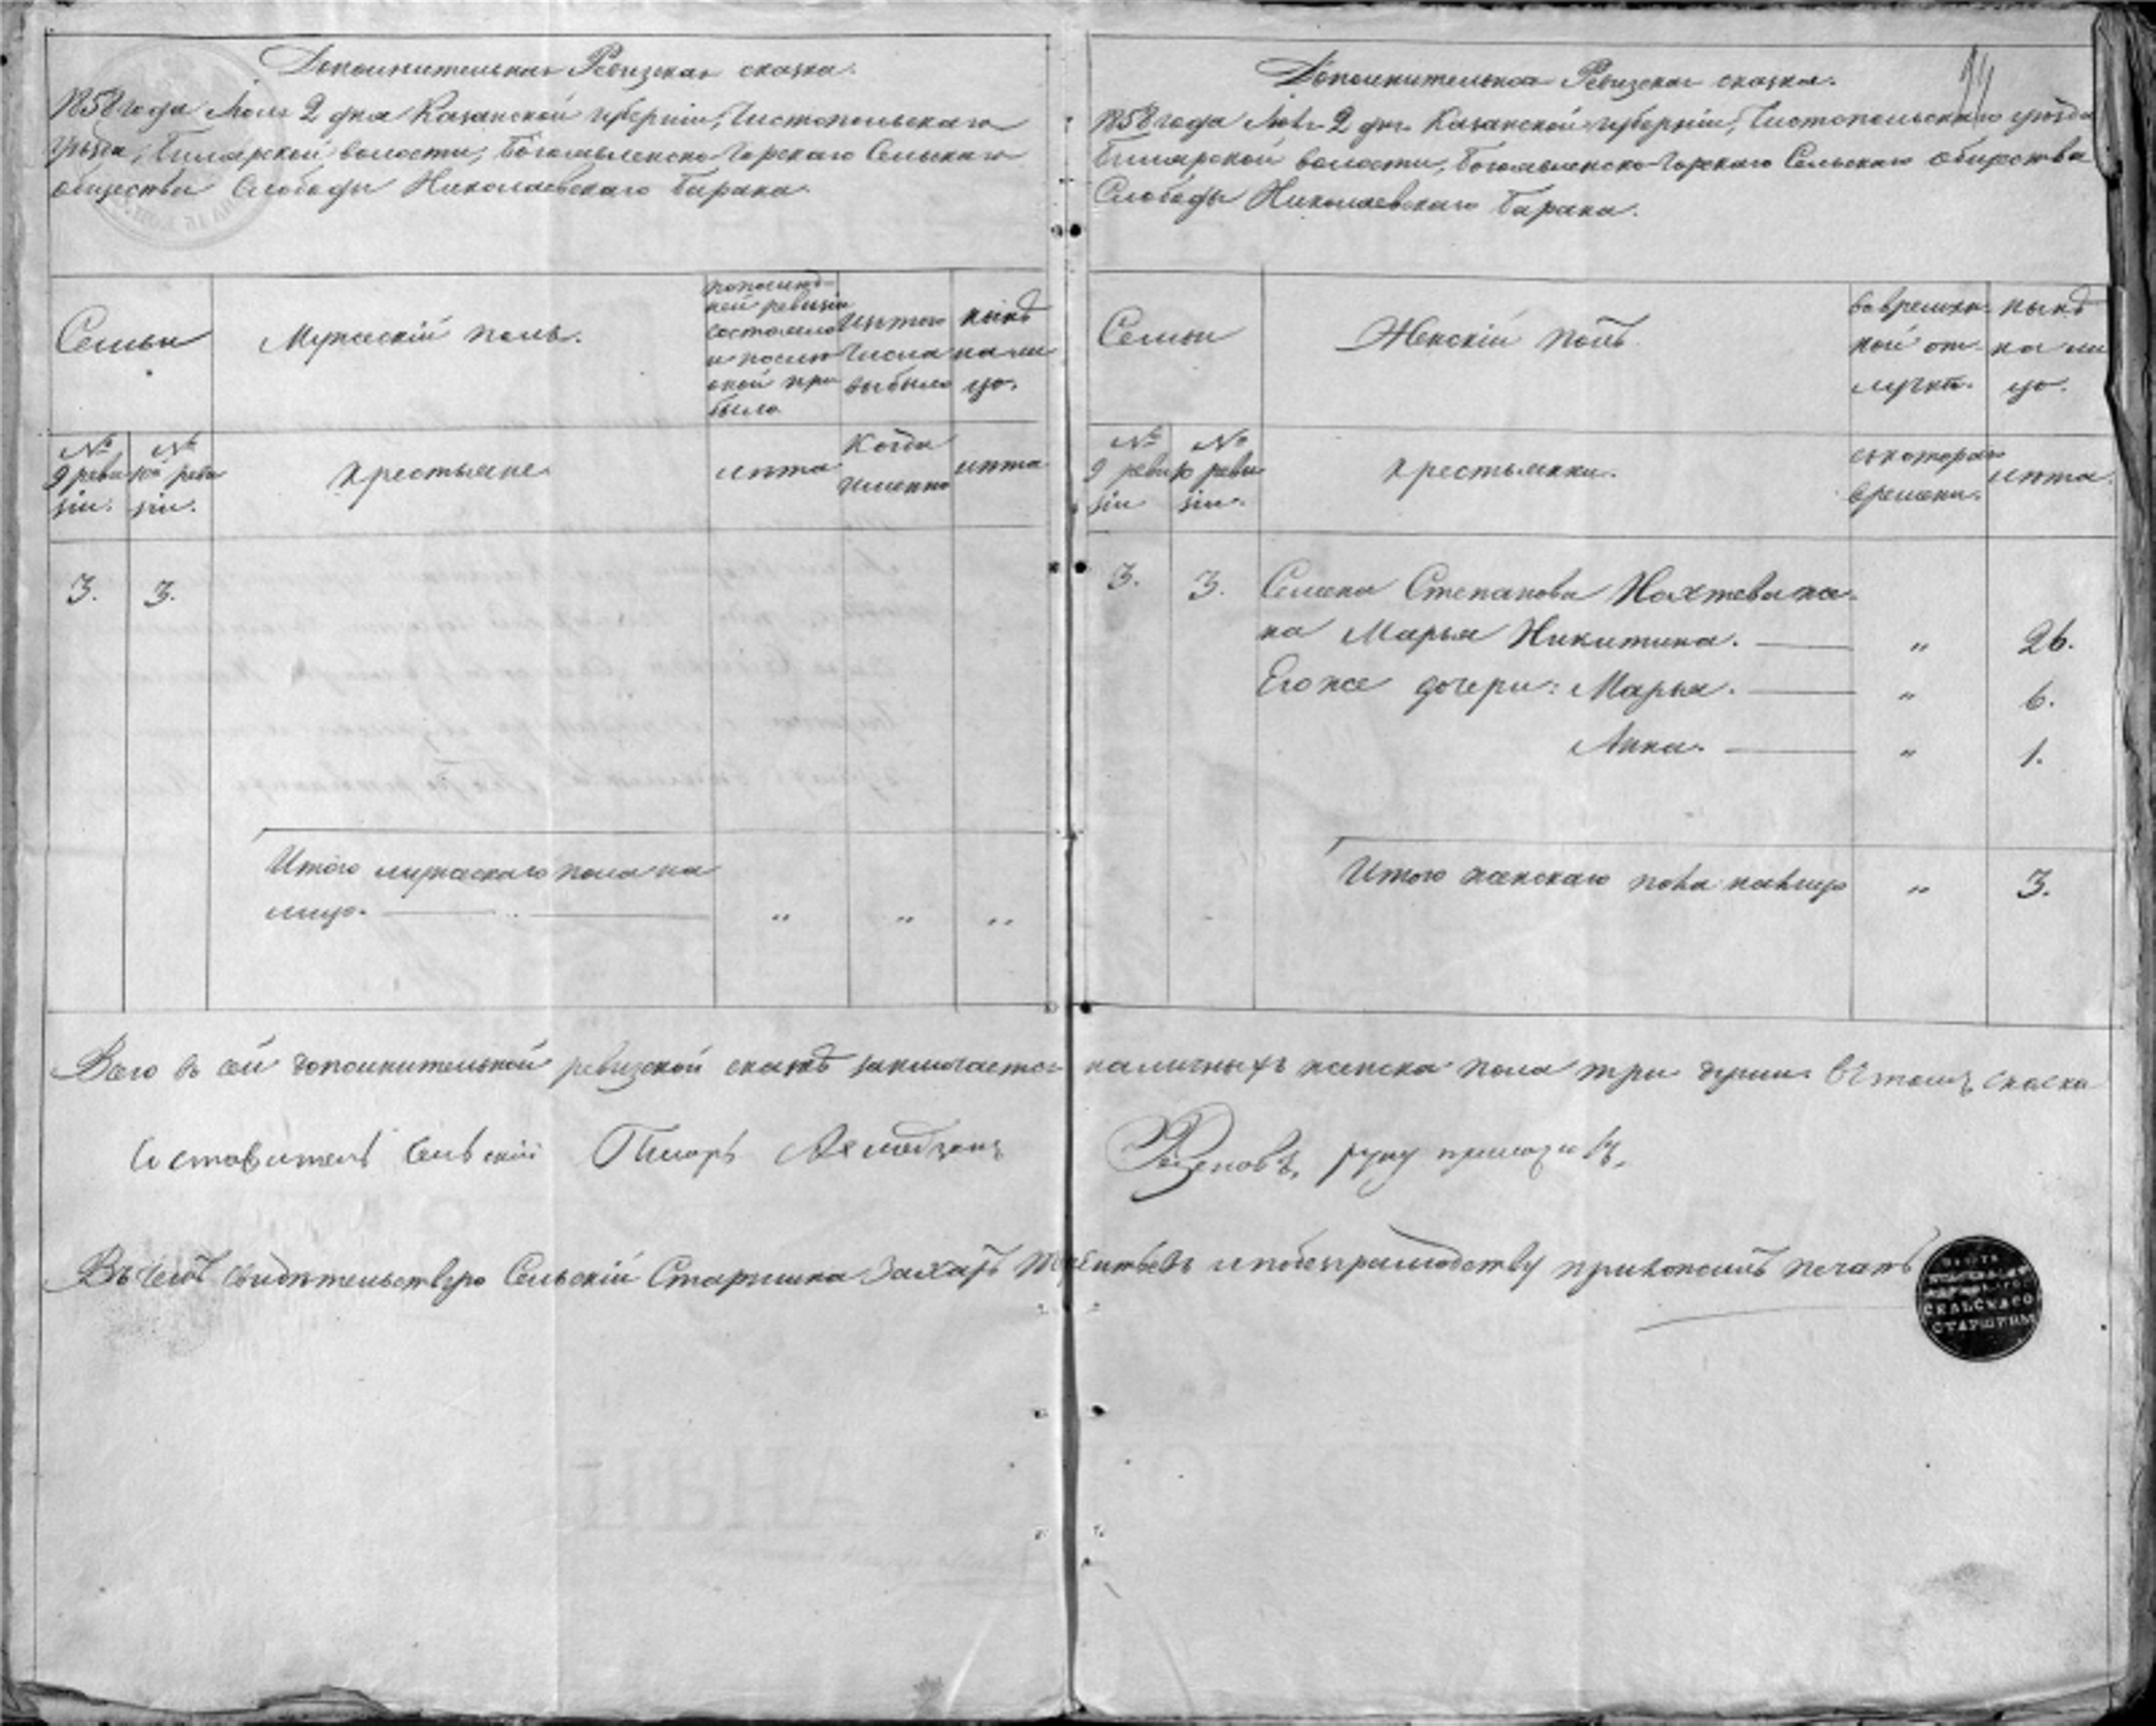 Дополнительная Ревизская сказка.
1858 года Июля 2 дня Казанской губерніи, Чистопольскаго
уѣзда, Билярской волости, Богоявленско-Горскаго Сельскаго
общества Слободы Николаевскаго Барака.
Семьи
Мужескій полъ.
по послѣд-
ней ревизіи
состояло
и послѣ
оной при
было
изъ того
числа
выбыло
нынѣ
на ли
цо.
№ 9 реви
зіи.
№ 10й реви
зіи.
Крестьяне
лѣта
Когда
именно
лѣта
3. 3.
Итого мужескаго пола на
лицо. — " " "
Дополнительная Ревизская сказка.
1858 года Июля 2 дня Казанской губерніи, Чистопольскаго уѣзда
Билярской волости, Богоявленско-Горскаго Сельскаго общества
Слободы Николаевскаго Барака.
Семьи
Женскій полъ
во времян
ной от
лучкѣ.
нынѣ
на ли
цо.
№ 9 реви
зіи
№ 10 реви
зіи.
Крестьянки.
съ котораго
времени.
лѣта.
3. 3. Семена Степанова жена
на Марья Никитина. — " 26.
Его же дочери: Марья. — " 6.
Анна. — " 1.
Итого женскаго пола налицо " 3.
Всего въ сей дополнительной ревизской сказкѣ заключается наличныхъ женска пола три души
Составитель сельскій Писарь руку приложилъ,
Въ чемъ свидѣтельствую Сельскій Старшина Захаръ и по безграмотству приложилъ печать
СЕЛЬСКАГО
СТАРШИНЫ